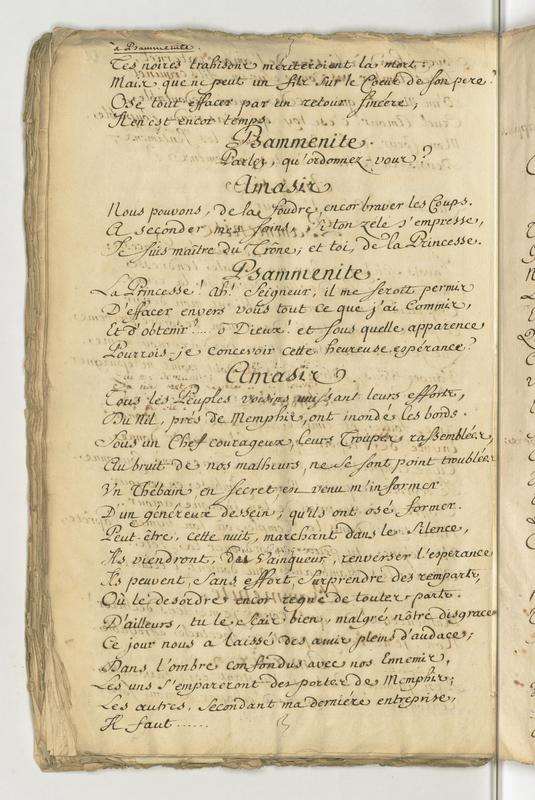 à Psammenite.
Tes noires trahisons mériteroient la mort:
Mais que ne peut un fils sur le Coeur de son pere?
Ose tout effacer par un retour sincére;
Il en est encor temps.
Psammenite.
Parlez, qu'ordonnez-vous?
Amasis.
Nous pouvons, de la foudre, encor braver les Coups.
A seconder mes soins, si ton zele s'empresse,
Je suis maître du Trône; et toi, de la Princesse.
Psammenite.
La Princesse! Ah! Seigneur, il me seroit permis
D'effacer envers vous tout ce que j'ai Commis,
Et d'obtenir!... ô Dieux! et sous quelle apparence
Pourrois-je concevoir cette heureuse espérance?
Amasis.
Tous les Peuples voisins unissant leurs efforts,
Du Nil, prés de Memphis, ont inondé les bords.
Sous un Chef courageux, leurs Troupes rassemblées,
Au bruit de nos malheurs, ne se sont point troublées
Un Thébain en secret en venu m'informer
D'un généreux dessein, qu'ils ont osé former.
Peut-être, cette nuit, marchant dans le Silence,
Ils viendront, des Vainqueurs, renverser l'esperance
Ils peuvent, sans effort, surprendre des remparts,
Où le desordre encor regne de toutes parts.
D'ailleurs, tu le sçais bien, malgré nôtre disgrace
Ce jour nous a laissé des amis pleins d'audace;
Dans l'ombre confondus avec nos Ennemis,
Les uns s'empareront des portes de Memphis;
Les autres, secondant ma derniére entreprise,
Il faut......